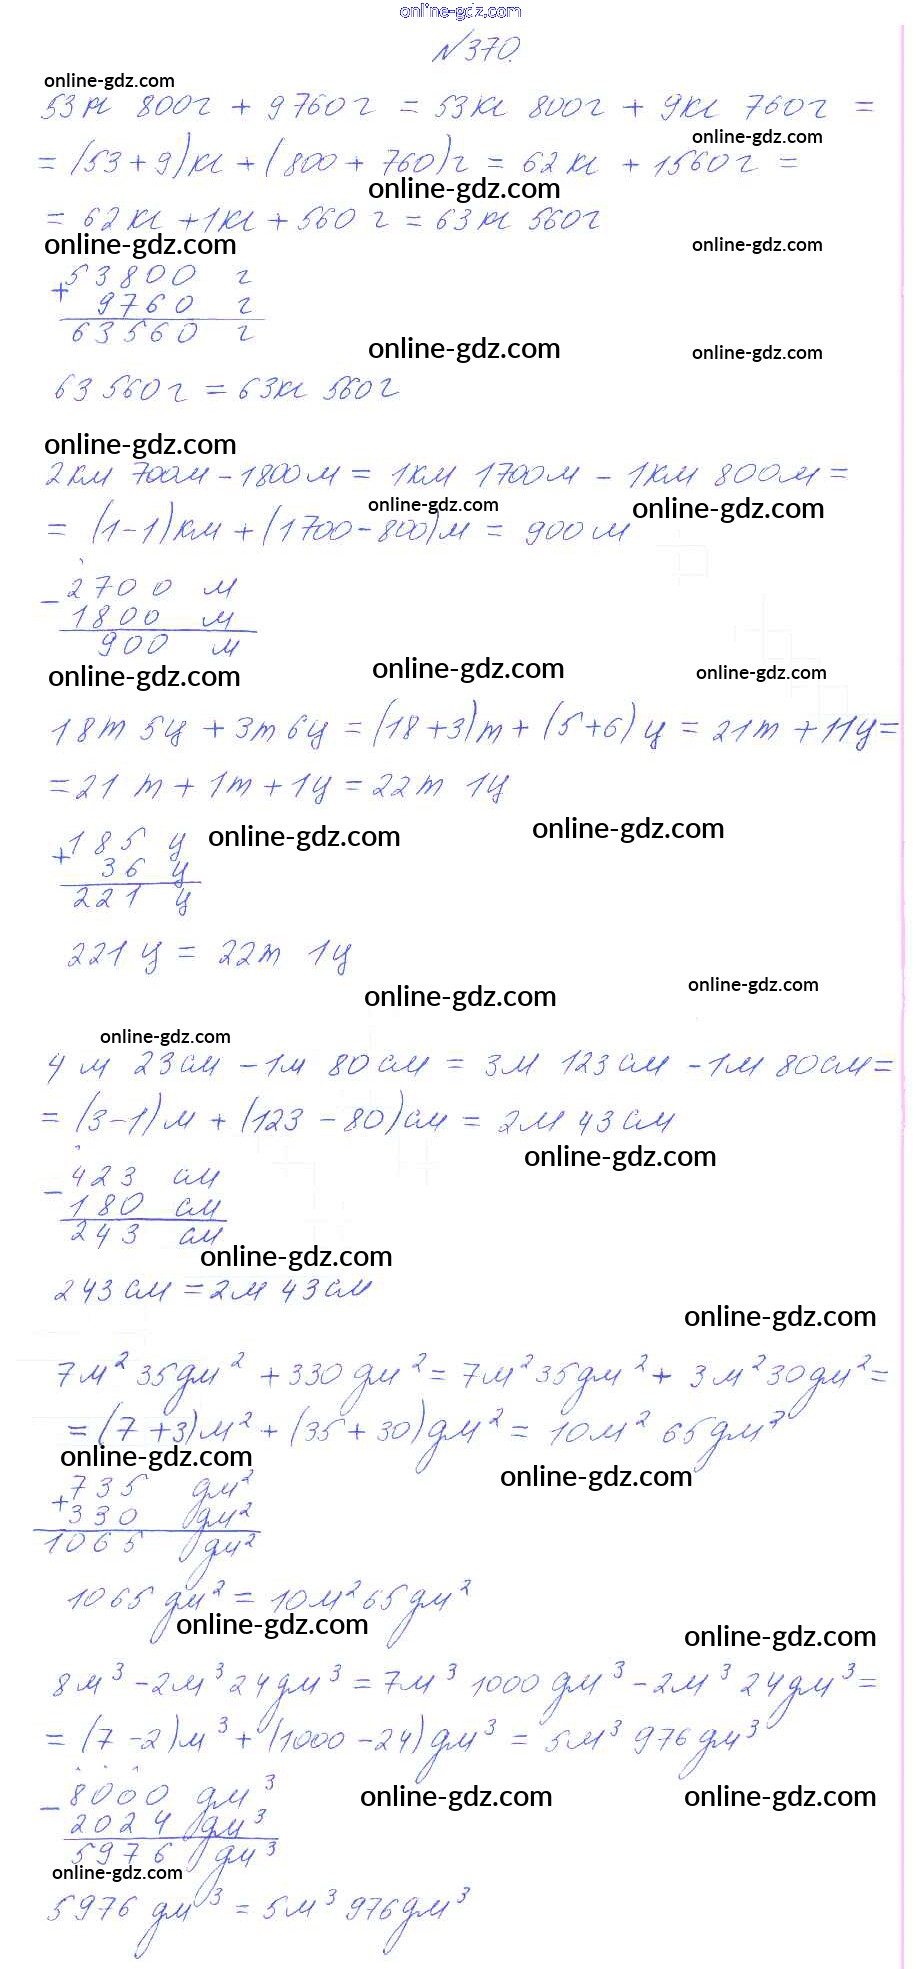 online-gdz.com
№370.
online-gdz.com
53 кг 800 г + 9760 г = 53 кг 800 г + 9 кг 760 г =
online-gdz.com
= (53 + 9) кг + (800 + 760) г = 62 кг + 1560 г =
online-gdz.com
= 62 кг + 1 кг + 560 г = 63 кг 560 г
online-gdz.com online-gdz.com
+ 53800 г
9760 г
63560 г
online-gdz.com online-gdz.com
63 560 г = 63 кг 560 г
online-gdz.com
2 км 700 м - 1800 м = 1 км 1700 м - 1 км 800 м =
online-gdz.com online-gdz.com
= (1-1) км + (1700 - 800) м = 900 м
- 2700 м
1800 м
900 м
online-gdz.com online-gdz.com online-gdz.com
18 т 5 ц + 3 т 6 ц = (18 + 3) т + (5 + 6) ц = 21 т + 11 ц =
= 21 т + 1 т + 1 ц = 22 т 1 ц
online-gdz.com online-gdz.com
+ 185 ц
36 ц
221 ц
221 ц = 22 т 1 ц
online-gdz.com online-gdz.com
online-gdz.com
4 м 23 см - 1 м 80 см = 3 м 123 см - 1 м 80 см =
= (3-1) м + (123 - 80) см = 2 м 43 см
online-gdz.com
- 423 см
180 см
243 см
online-gdz.com
243 см = 2 м 43 см
online-gdz.com
7 м² 35 дм² + 330 дм² = 7 м² 35 дм² + 3 м² 30 дм² =
= (7 + 3) м² + (35 + 30) дм² = 10 м² 65 дм²
online-gdz.com online-gdz.com
+ 735 дм²
330 дм²
1065 дм²
1065 дм² = 10 м² 65 дм²
online-gdz.com online-gdz.com
8 м³ - 2 м³ 24 дм³ = 7 м³ 1000 дм³ - 2 м³ 24 дм³ =
= (7 - 2) м³ + (1000 - 24) дм³ = 5 м³ 976 дм³
online-gdz.com online-gdz.com
- 8000 дм³
2024 дм³
5976 дм³
online-gdz.com
5976 дм³ = 5 м³ 976 дм³